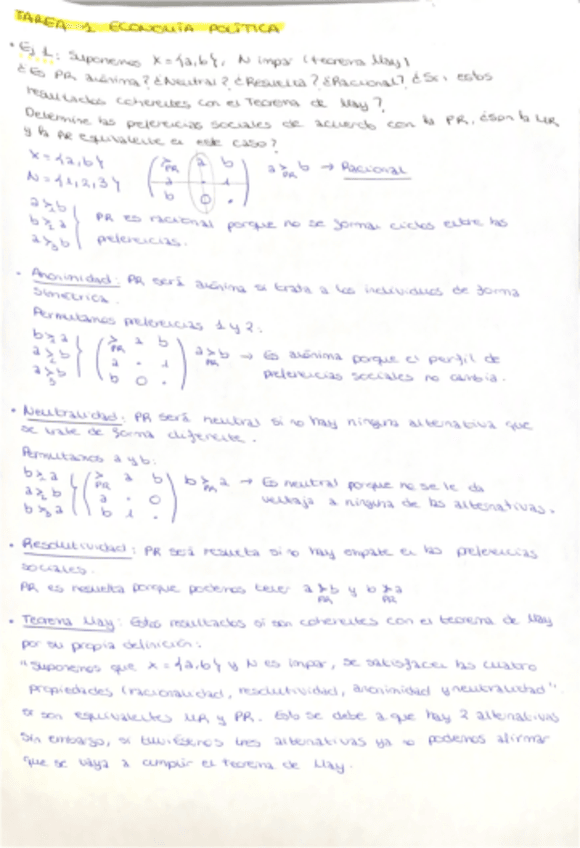 TAREA 1 ECONOMÍA POLÍTICA
• Ej 1: Suponemos X = {a,b}, N impar (teorema May)
¿Es PR anónima? ¿Neutral? ¿Resuelta? ¿Racional? ¿Son estos
resultados coherentes con el Teorema de May?
Determine las preferencias sociales de acuerdo con la PR, ¿son la MR
y la PR equivalente en este caso?
X = {a,b} ( ≽PR a b a ≽PR b → Racional
N = {1,2,3} a · 1
b 0 · )
a ≽1 b
b ≽2 a } PR es racional porque no se forman ciclos entre las
a ≽3 b preferencias.
- Anonimidad: PR será anónima si trata a los individuos de forma
simétrica.
Permutamos preferencias 1 y 2:
b ≽1 a ( ≽PR a b
a ≽2 b } a · 1 a ≽PR b → Es anónima porque el perfil de
a ≽3 b b 0 · ) preferencias sociales no cambia.
• Neutralidad: PR será neutral si no hay ninguna alternativa que
se trate de forma diferente.
Permutamos a y b:
b ≽1 a ( ≽PR a b ) b ≽PR a → Es neutral porque no se le da
a ≽2 b } a · 0 ventaja a ninguna de las alternativas.
b ≽3 a b 1 ·
• Resolutividad: PR será resuelta si no hay empate en las preferencias
sociales.
PR es resuelta porque podemos tener a ≽PR b y b ≽PR a
• Teorema May: Estos resultados si son coherentes con el teorema de May
por su propia definición:
"Suponemos que X = {a,b} y N es impar, se satisfacen las cuatro
propiedades (racionalidad, resolutividad, anonimidad y neutralidad)".
si son equivalentes MR y PR. Esto se debe a que hay 2 alternativas
sin embargo, si tuviésemos tres alternativas ya no podemos afirmar
que se vaya a cumplir el teorema de May.